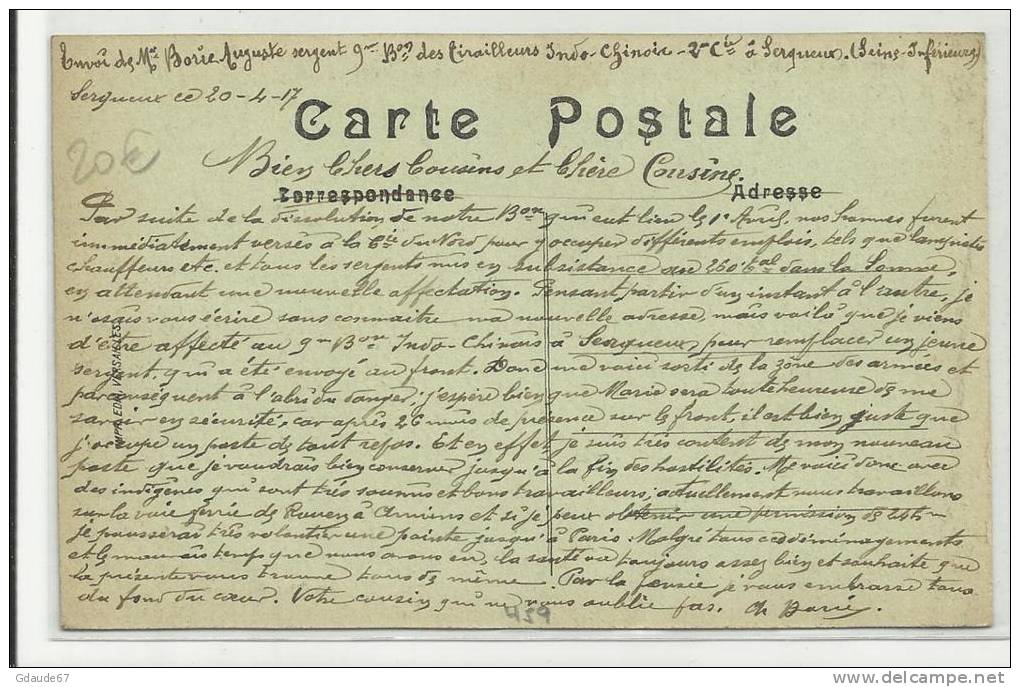 Envoi de Mr Borie Auguste sergent 9me Bon des Tirailleurs Indo-Chinois - 2me Cie à Serqueux. (Seine-Inférieure)
Serqueux ce 20-4-17
Carte Postale
20€
Bien Chers Cousins et Chère Cousine.
Correspondance Adresse
Par suite de la dissolution de notre Bon qui eut lieu le 1er Avril, nos hommes furent
immédiatement versés à la Cie du Nord pour y occuper différents emplois, tels que lampistes
chauffeurs etc. et tous les sergents mis en subsistance au 260e tal dans la Somme,
en attendant une nouvelle affectation. Pensant partir d'un instant à l'autre, je
n'osais vous écrire sans connaitre ma nouvelle adresse mais voilà que je viens
d'être affecté au 9me Bon Indo-Chinois à Serqueux pour remplacer un jeune
sergent qui a été envoyé au front. Donc me voici sorti de la zône des armées et
par conséquent à l'abri du danger; j'espère bien que Marie sera toute heureuse de me
savoir en sécurité, car après 26 mois de présence sur le front, il est bien juste que
j'occupe un poste de tout repos. Et en effet je suis très content de mon nouveau
poste que je voudrais bien conserver jusqu'à la fin des hostilités. Me voici donc avec
des indigènes qui sont très soumis et bons travailleurs; actuellement nous travaillons
sur la voie ferrée de Rouen à Amiens et si je peux obtenir une permission de 24h
je pousserai très volontier une pointe jusqu'à Paris. Malgré tous ces déménagements
et le mauvais temps que nous avons eu, la santé va toujours assez bien et souhaite que
la présente vous trouve tous de même. Par la pensée je vous embrasse tous
du fond du cœur. Votre cousin qui ne vous oublie pas. Borie.
459
VERSAILLES
Gdaude67
www.delcampe.net